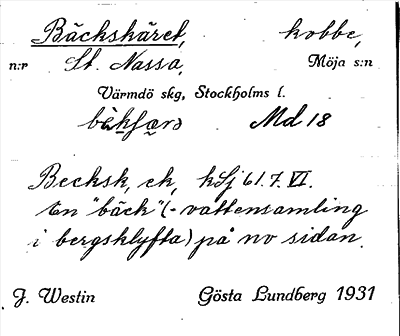 Bäckskäret, kobbe,
n:r St. Nassa, Möja s:n
Värmdö skg, Stockholms l.
Md 18
Becksk, ek, kSj 61.7.VI.
En "bäck" (= vattensamling
i bergsklyfta) på nv sidan.
J. Westin Gösta Lundberg 1931